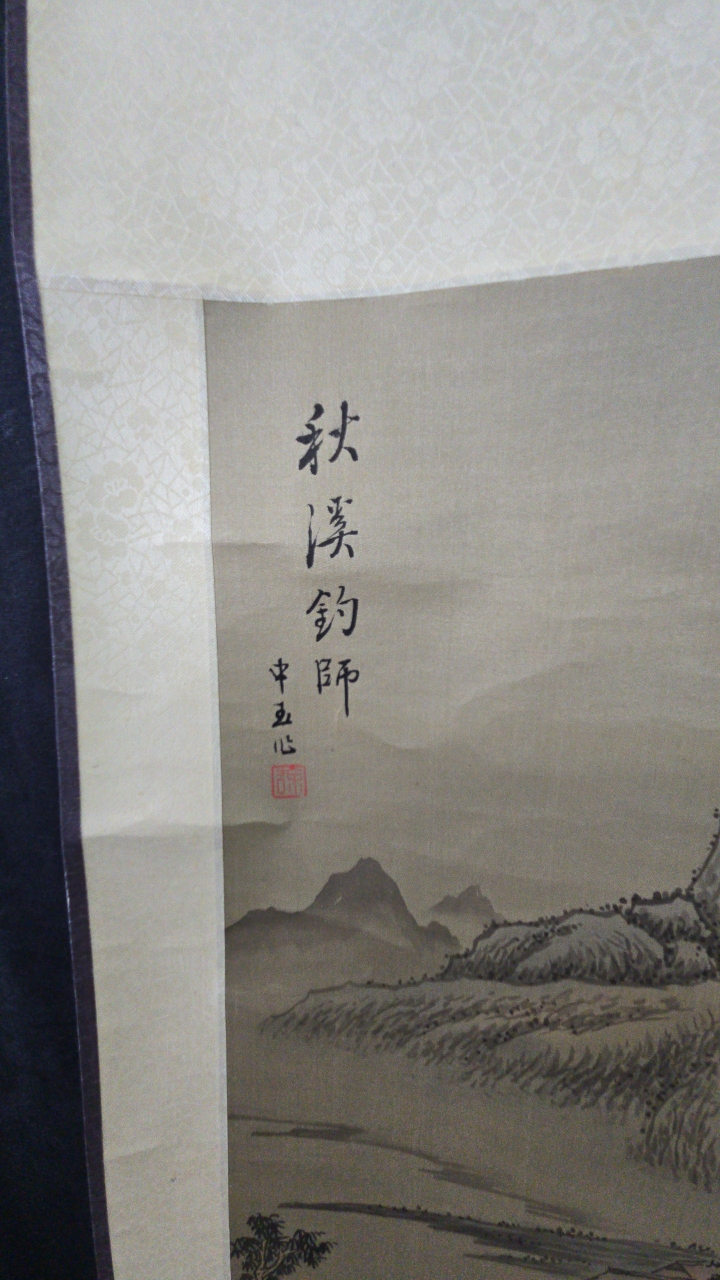 秋溪釣師
中玉作